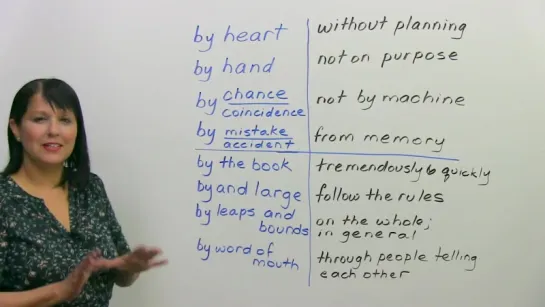 by heart
by hand
by chance
coincidence
by mistake
accident
by the book
by and large
by leaps and
bounds
by word of
mouth
without planning
not on purpose
not by machine
from memory
tremendously & quickly
follow the rules
on the whole;
in general
through people telling
each other